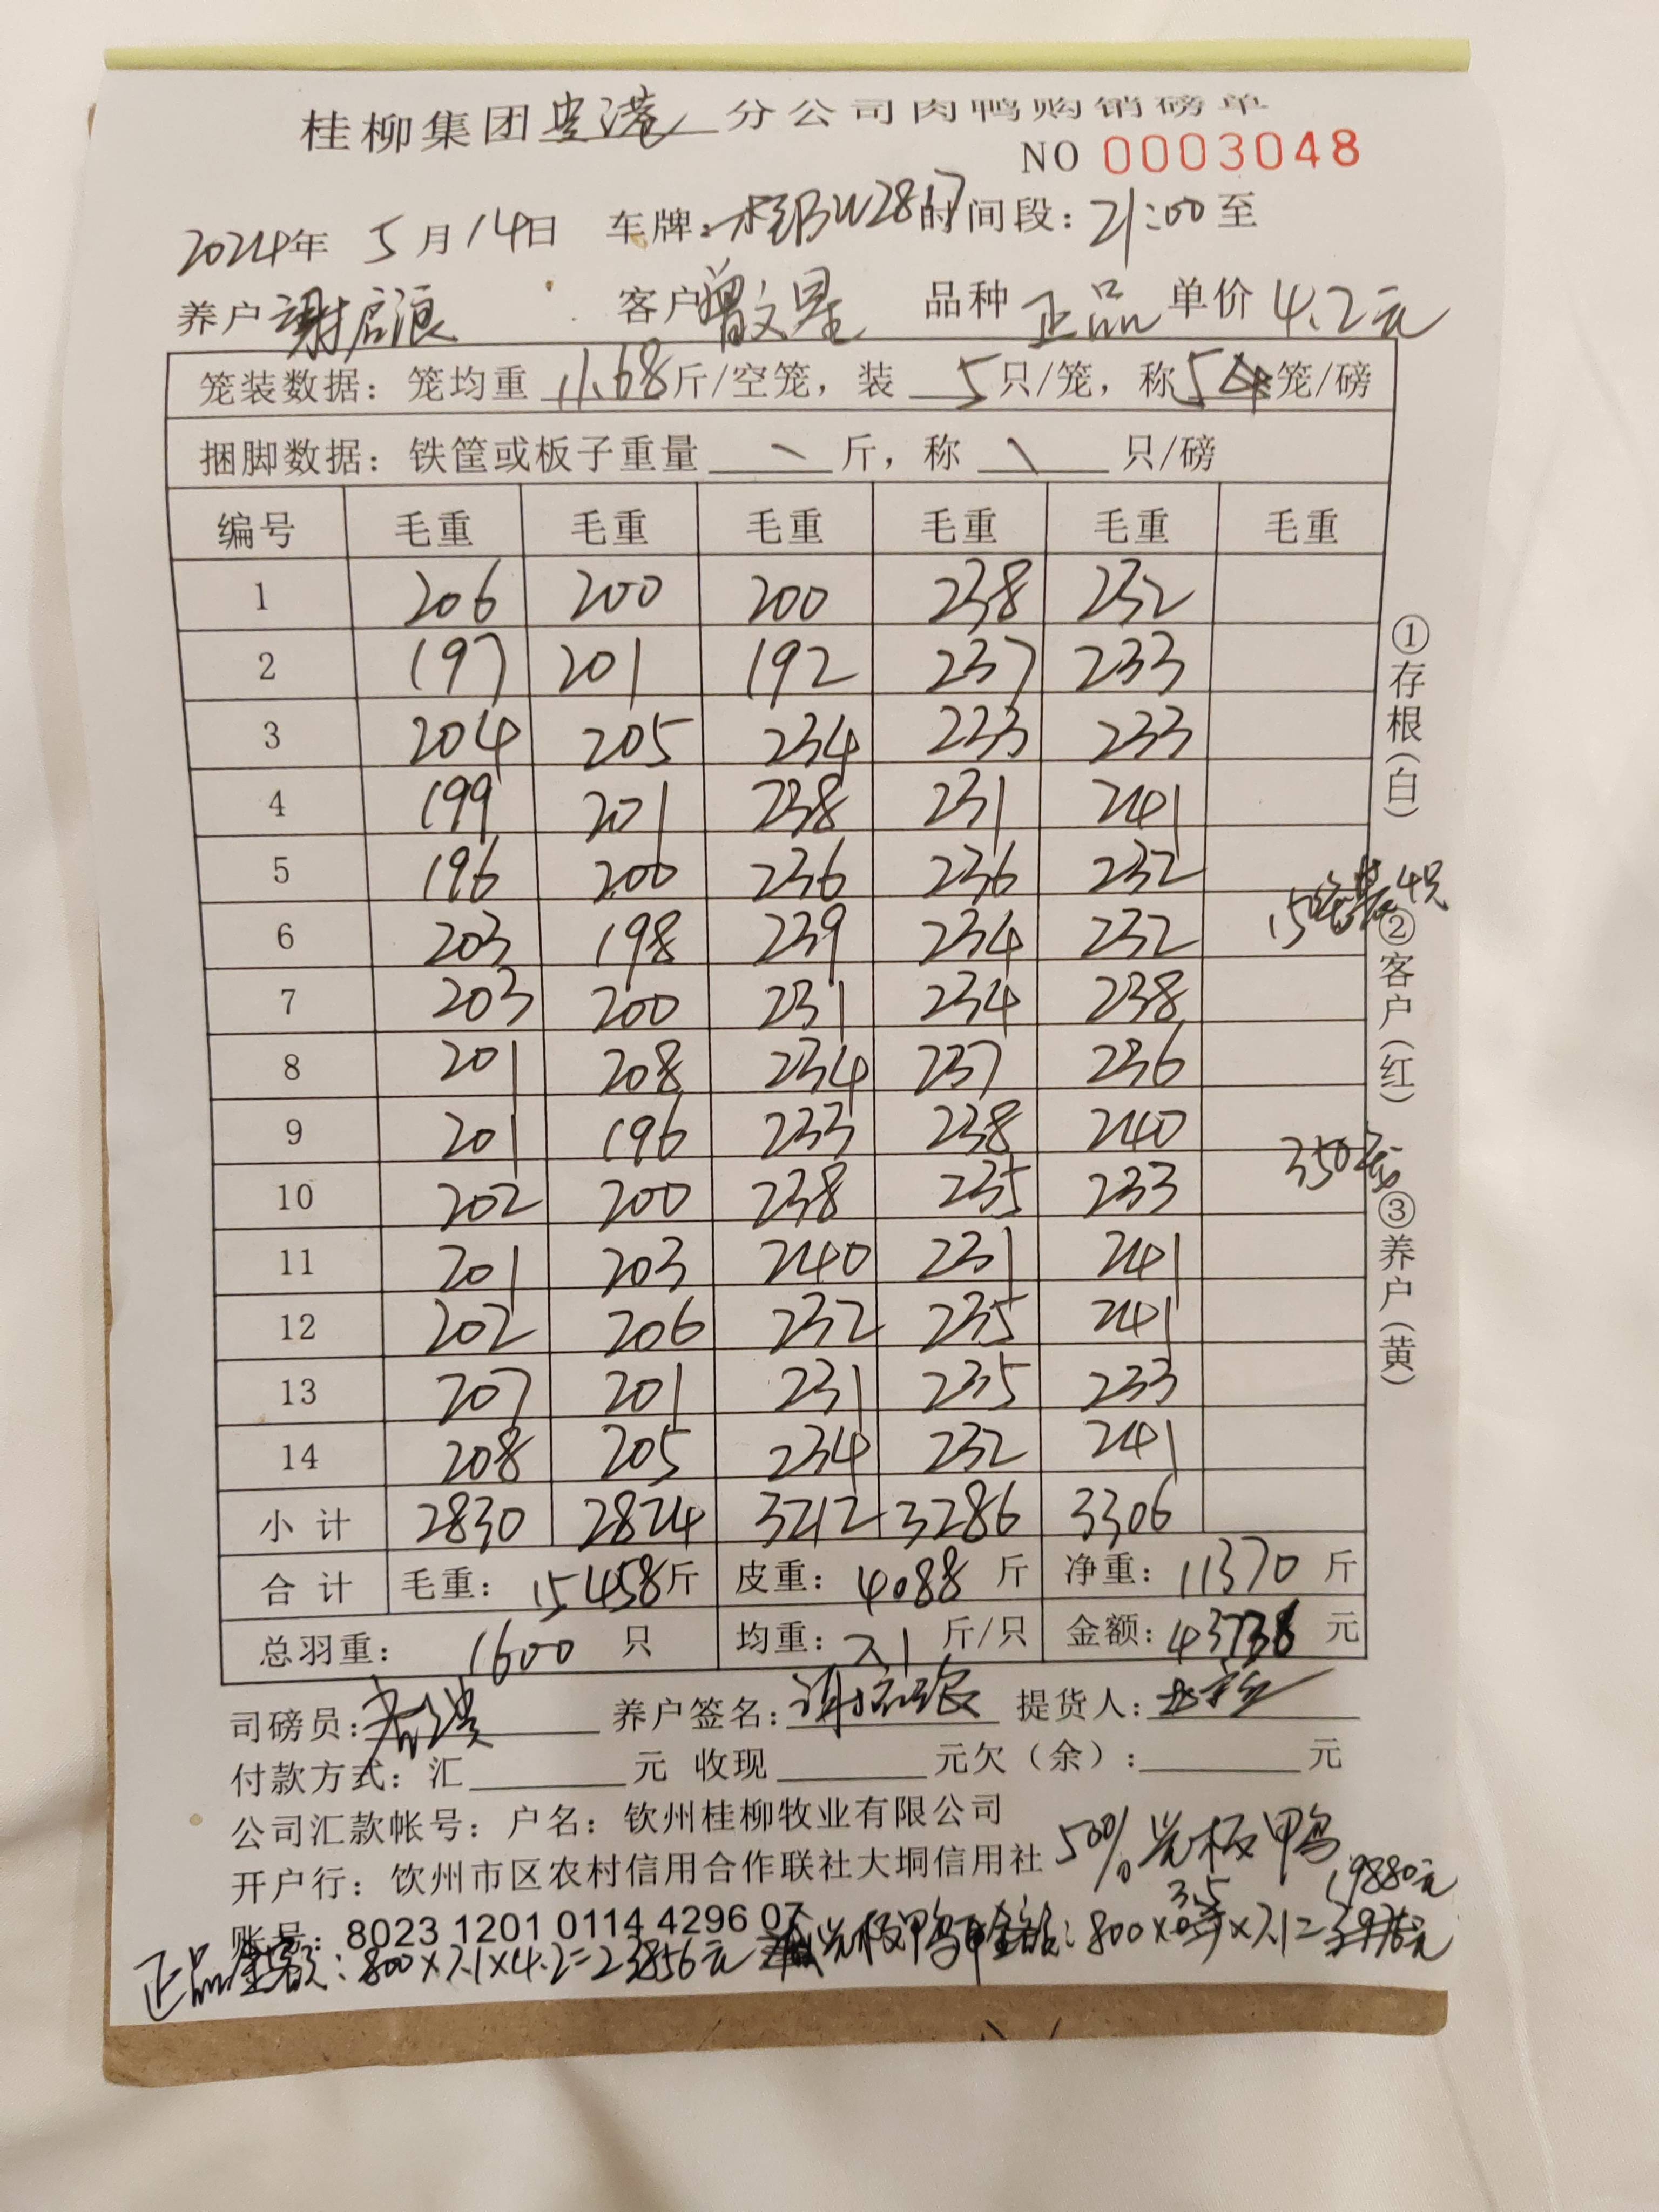 桂柳集团贵港分公司肉鸭购销磅单
NO 0003048
2024年 5月14日 车牌:桂BW2817时间段:21:00至
养户谢启浪 客户曾文星 品种正品 单价4.2元
笼装数据:笼均重11.68斤/空笼,装5只/笼,称54笼/磅
捆脚数据:铁筐或板子重量 \ 斤,称 \ 只/磅
编号 毛重 毛重 毛重 毛重 毛重 毛重
1 206 200 200 238 232
2 197 201 192 237 233
3 204 205 234 233 233
4 199 201 238 231 241
5 196 200 236 236 232
6 203 198 239 234 232
7 203 200 231 234 238
8 201 208 234 237 236
9 201 196 233 238 240
10 202 200 238 235 233
11 201 203 240 231 241
12 202 206 232 235 241
13 207 201 231 235 233
14 208 205 234 232 241
小计 2830 2824 3212 3286 3306
合计 毛重:15458斤 皮重:4088斤 净重:11370斤
总羽重:1600只 均重:7.1斤/只 金额:43736元
15笼装4只
350笼
①存根(白) ②客户(红) ③养户(黄)
司磅员: 养户签名:谢启浪 提货人:
付款方式:汇 元 收现 元欠(余): 元
公司汇款帐号:户名:钦州桂柳牧业有限公司
开户行:钦州市区农村信用合作联社大垌信用社
50%光板鸭
账号:8023 1201 0114 4296 07
19880元
正品金额:800×7.1×4.2=23856元 光板鸭金额:800×3.5×7.1=